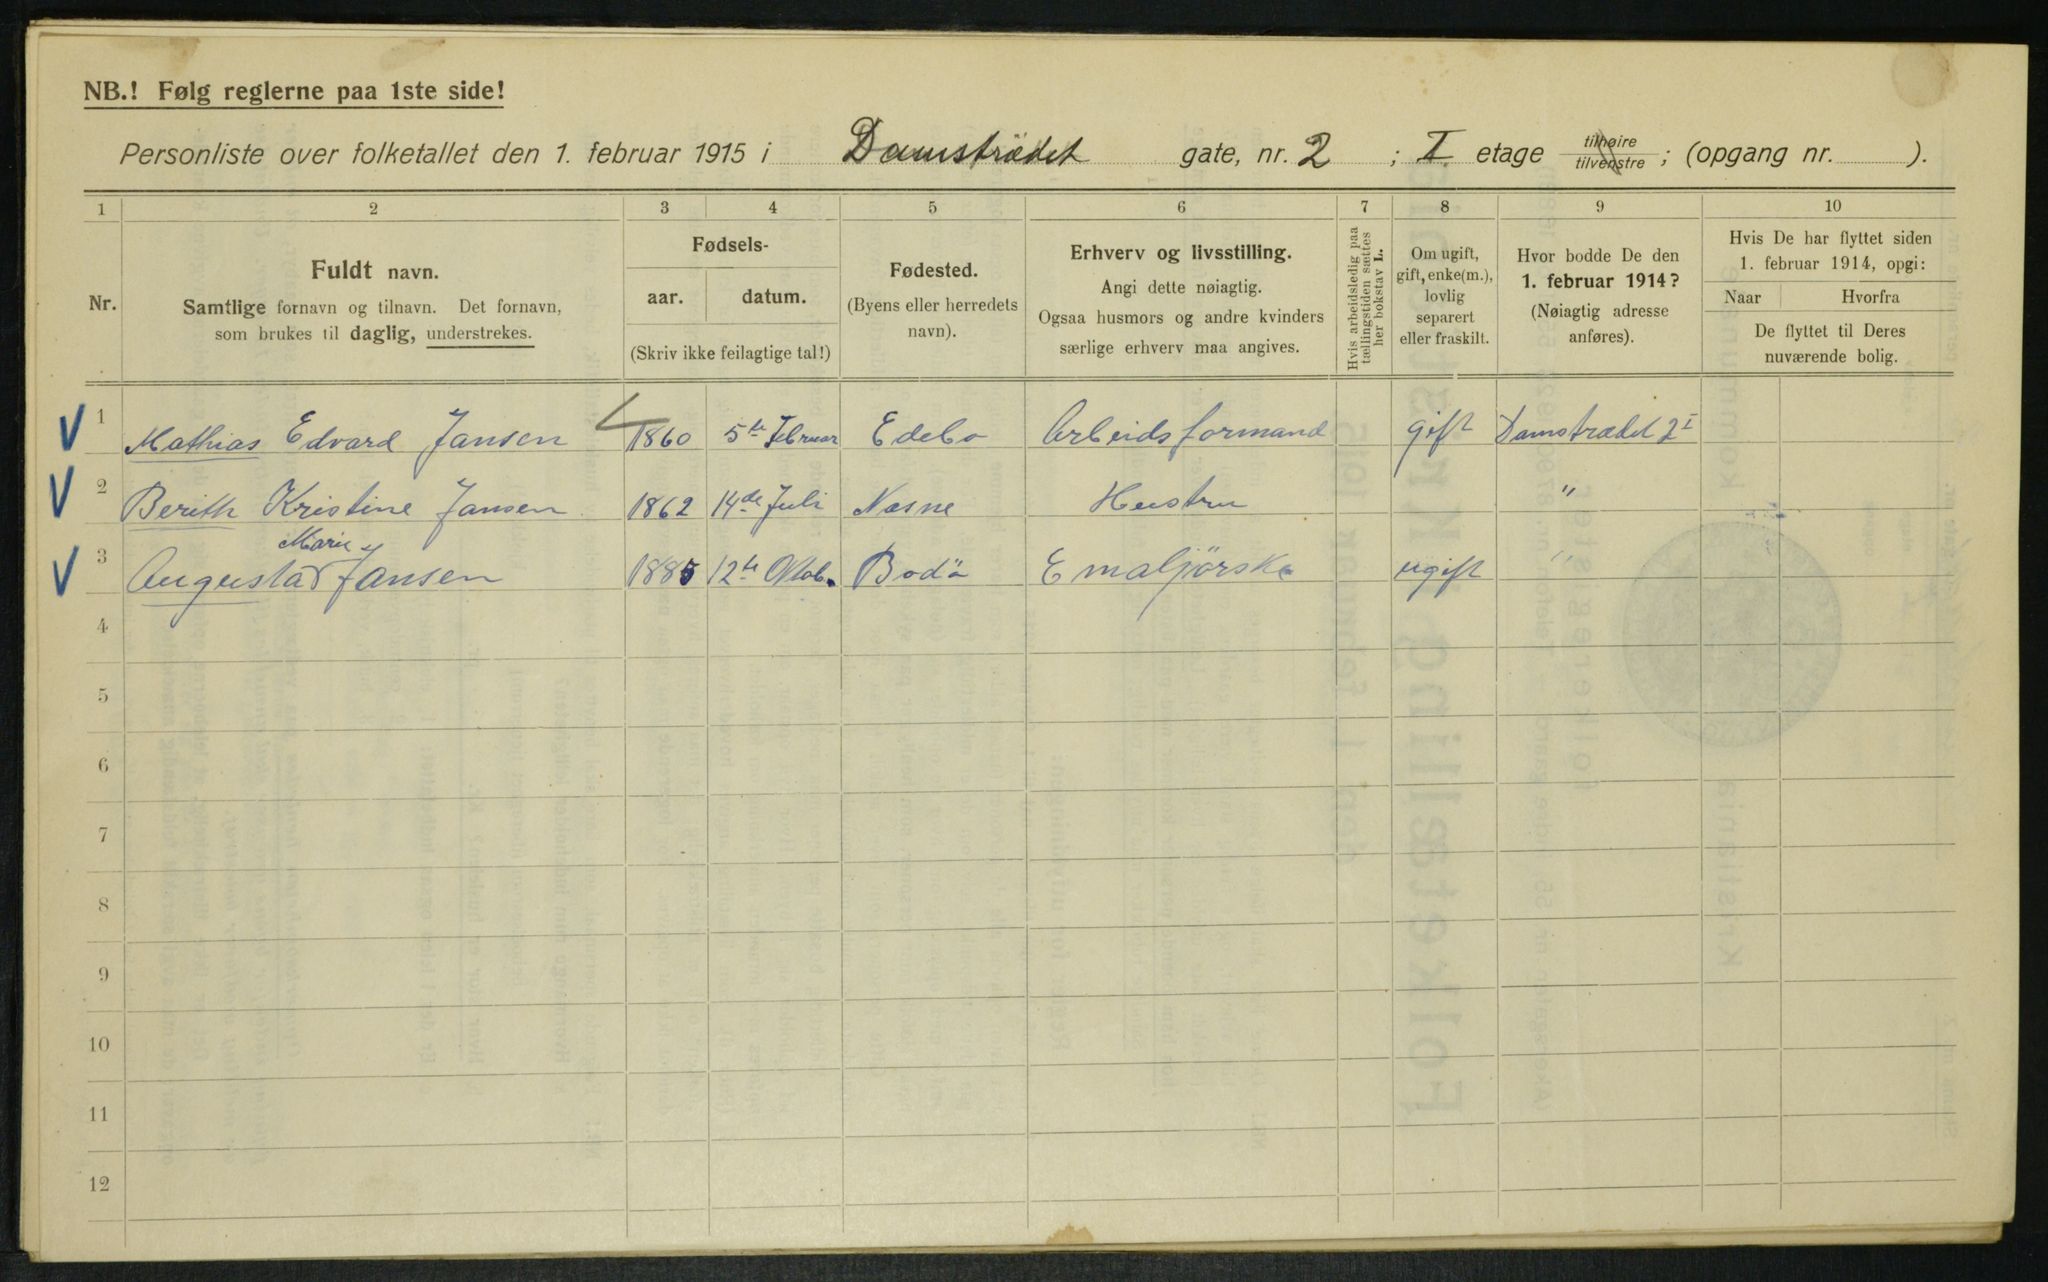 NB.! Følg reglerne paa 1ste side!
Personliste over folketallet den 1. februar 1915 i Damstrædet gate, nr. 2 ; I etage tilhøire tilvenstre ; (opgang nr. ).
1 2 3 4 5 6 7 8 9 10
Nr.
Fuldt navn.
Samtlige fornavn og tilnavn. Det fornavn,
som brukes til daglig, understrekes.
Fødsels-
aar. datum.
(Skriv ikke feilagtige tal!)
Fødested.
(Byens eller herredets
navn).
Erhverv og livsstilling.
Angi dette nøiagtig.
Ogsaa husmors og andre kvinders
særlige erhverv maa angives.
Hvis arbeidsledig paa
tællingstiden sættes
her bokstav L.
Om ugift,
gift, enke(m.),
lovlig
separert
eller fraskilt.
Hvor bodde De den
1. februar 1914?
(Nøiagtig adresse
anføres).
Hvis De har flyttet siden
1. februar 1914, opgi:
Naar Hvorfra
De flyttet til Deres
nuværende bolig.
1 Mathias Edvard Jansen 1860 5te Februar Edebo Arbeidsformand gift Damstrædet 2 I
2 Berith Kristine Jansen 1862 14de Juli Nesne Hustru "
Marie
3 Augusta Jansen 1885 12te Oktob. Bodö Emaljørske ugift "
4
5
6
7
8
9
10
11
12